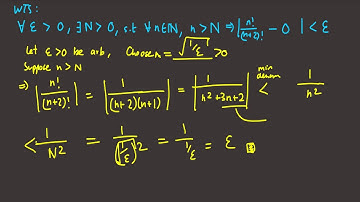 WTS:
∀ ε > 0, ∃ N > 0, s.t ∀ n∈ℕ, n > N ⇒ | n!/(n+2)! - 0 | < ε
Let ε > 0 be arb, Choose n = √(1/ε) > 0
Suppose n > N
⇒ | n!/(n+2)! | = | 1/((n+2)(n+1)) | = | 1/(n²+3n+2) | < 1/n²
min denom
< 1/N² = 1/(√(1/ε))² = 1/(1/ε) = ε